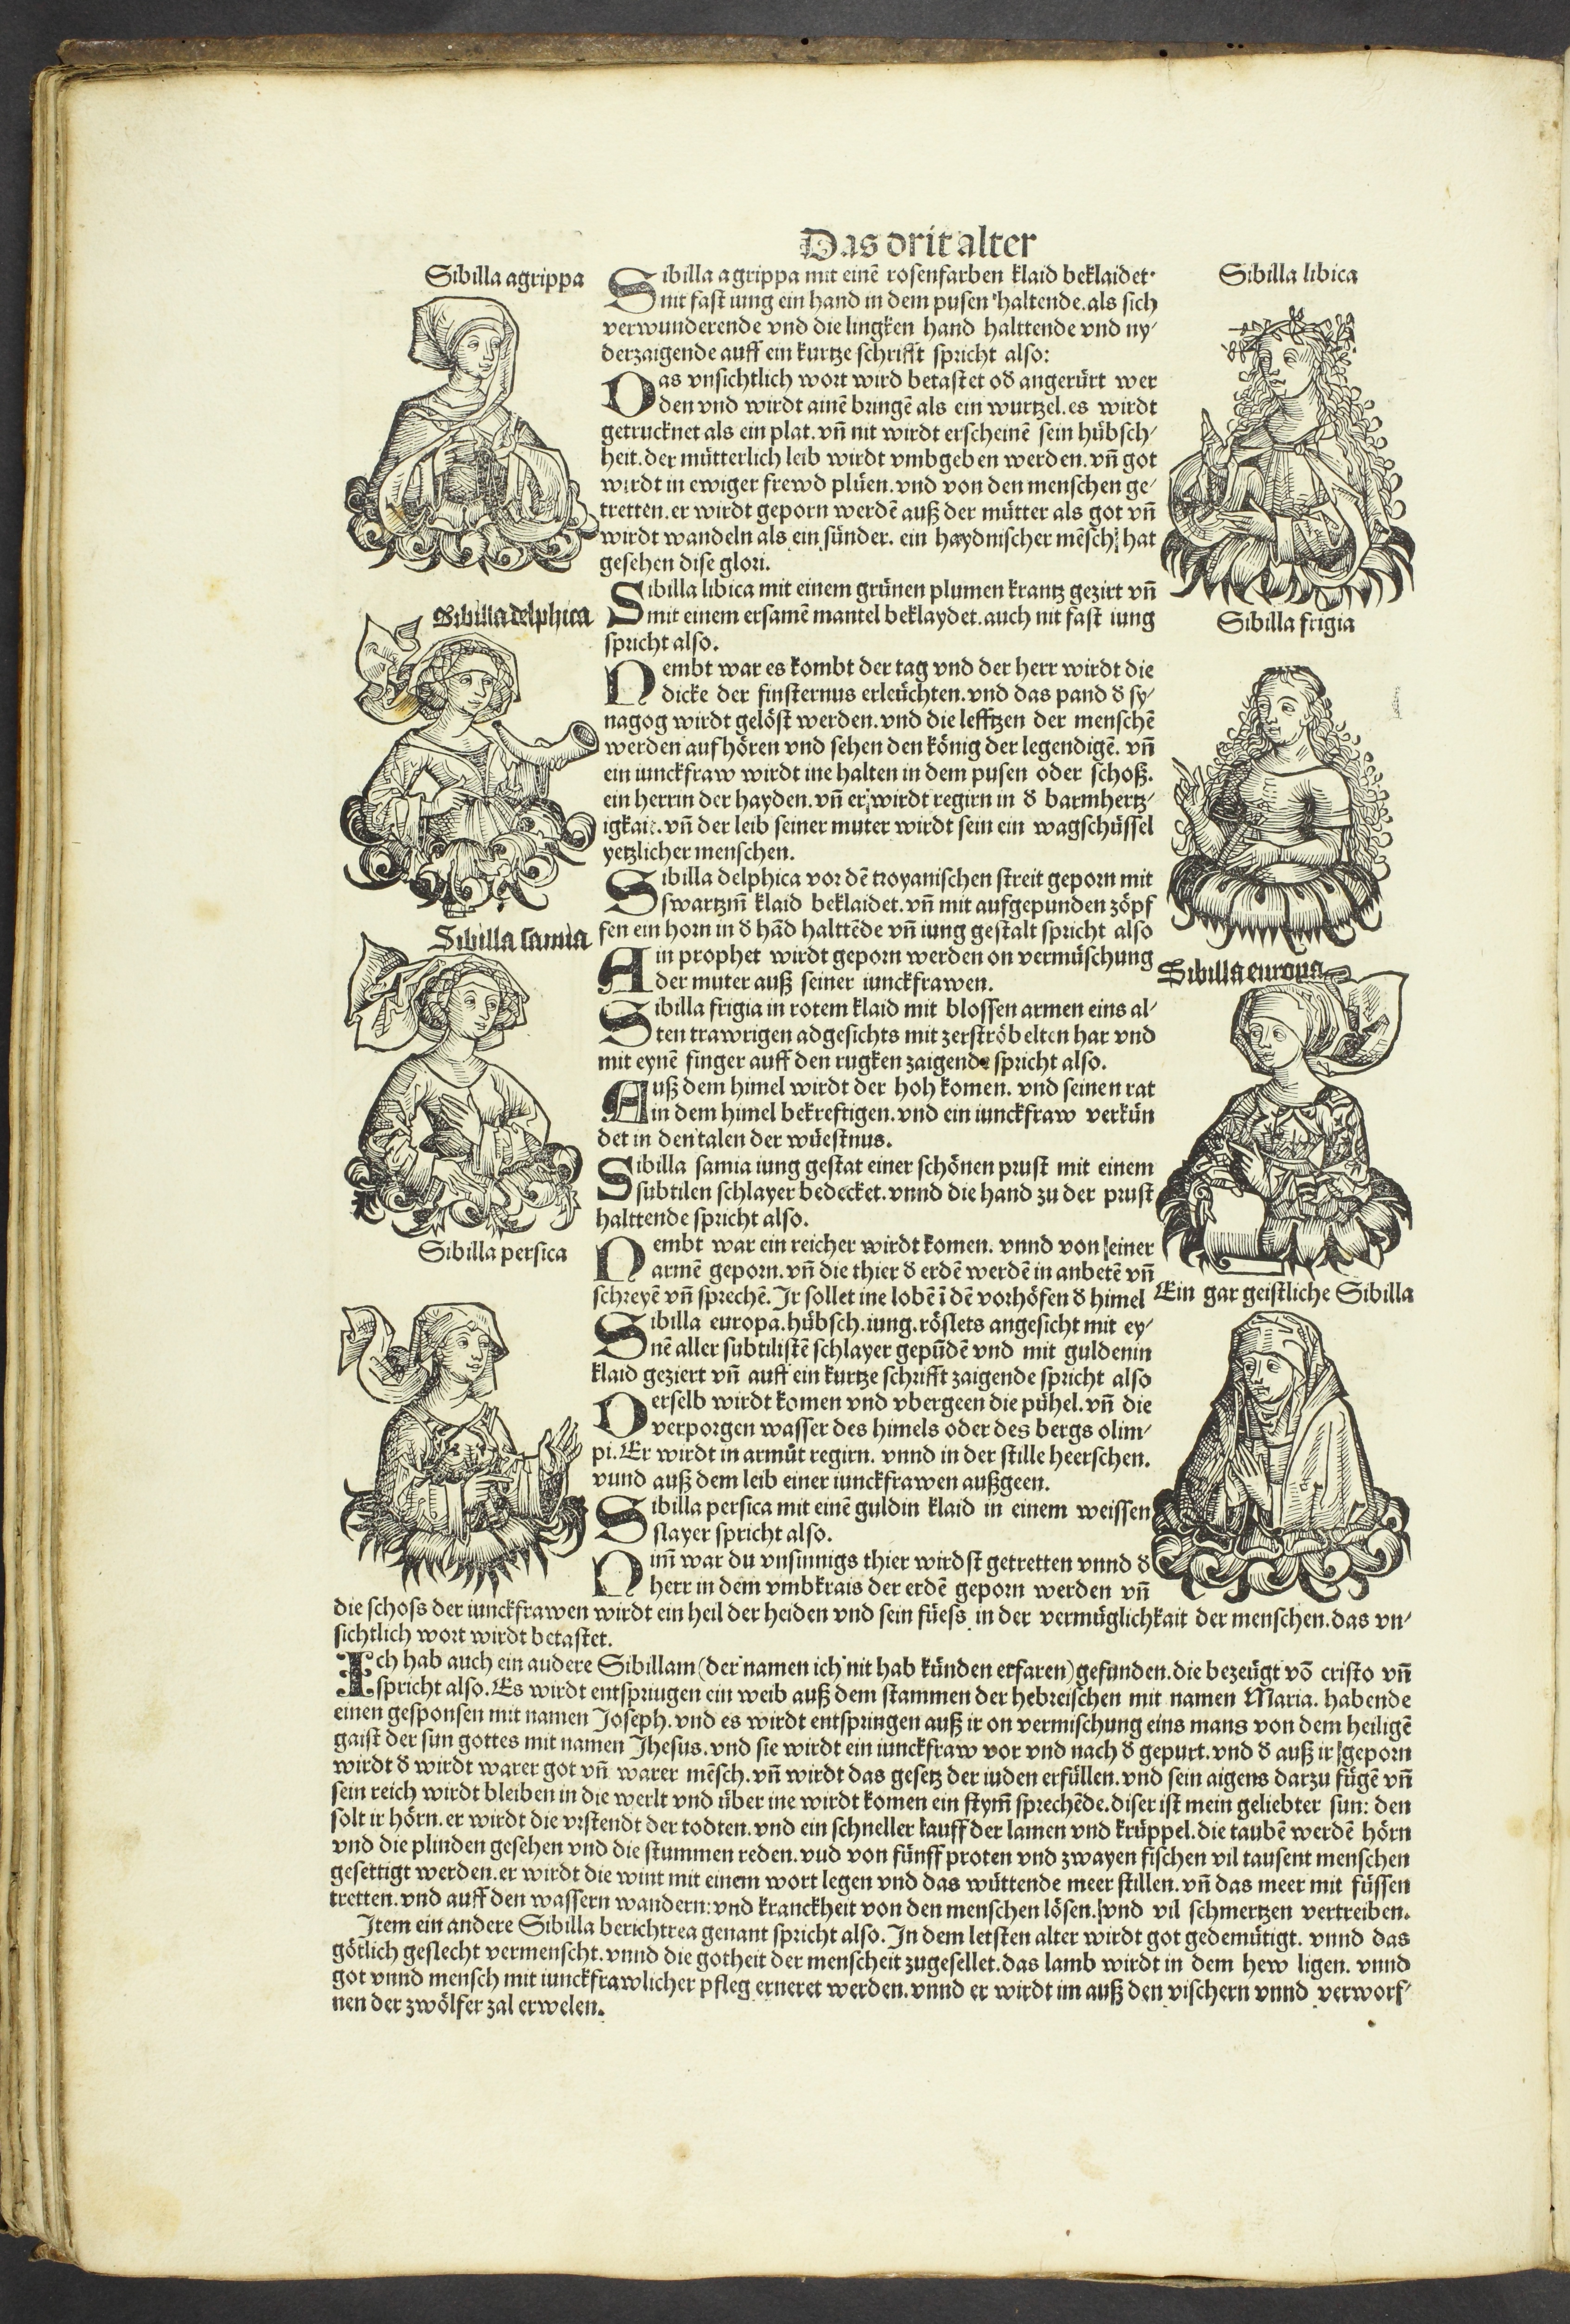 Das drit alter
Sibilla agrippa
Sibilla agrippa mit einē rosenfarben klaid beklaidet.
nit fast iung ein hand in dem pusen haltende. als sich
verwunderende vnd die lingken hand halttende vnd ny-
derzaigende auff ein kurtze schrifft spricht also:
Das vnsichtlich wort wird betastet oď angerürt wer
den vnd wirdt ainē bringē als ein wurtzel. es wirdt
getrucknet als ein plat. vn̄ nit wirdt erscheinē sein hübsch-
heit. der mütterlich leib wirdt vmbgeben werden. vn̄ got
wirdt in ewiger frewd plüen. vnd von den menschen ge-
tretten. er wirdt geporn werdē auß der mütter als got vn̄
wirdt wandeln als ein sünder. ein haydnischer mēsch hat
gesehen dise glori.
Sibilla libica
Sibilla libica mit einem grünen plumen krantz gezirt vn̄
mit einem ersamē mantel beklaydet. auch nit fast iung
spricht also.
Nembt war es kombt der tag vnd der herr wirdt die
dicke der finsternus erleüchten. vnd das pand ď sy-
nagog wirdt gelöst werden. vnd die lefftzen der menschē
werden auf hören vnd sehen den könig der legendigē. vn̄
ein iunckfraw wirdt ine halten in dem pusen oder schoß.
ein herrin der hayden. vn̄ er wirdt regirn in ď barmhertz-
igkait. vn̄ der leib seiner muter wirdt sein ein wagschüssel
yetzlicher menschen.
Sibilla delphica
Sibilla delphica vor dē troyanischen streit geporn mit
swartzm̄ klaid beklaidet. vn̄ mit aufgepunden zöpf
fen ein horn in ď hād halttēde vn̄ iung gestalt spricht also
Ain prophet wirdt geporn werden on vermüschung
der muter auß seiner iunckfrawen.
Sibilla frigia
Sibilla frigia in rotem klaid mit blossen armen eins al-
ten trawrigen adgesichts mit zerströbelten har vnd
mit eynē finger auff den rugken zaigende spricht also.
Auß dem himel wirdt der hoh komen. vnd seinen rat
in dem himel bekreftigen. vnd ein iunckfraw verkün
det in den talen der wüestnus.
Sibilla samia
Sibilla samia iung gestat einer schönen prust mit einem
subtilen schlayer bedecket. vnnd die hand zu der prust
halttende spricht also.
Nembt war ein reicher wirdt komen. vnnd von einer
armē geporn. vn̄ die thier ď erdē werdē in anbetē vn̄
schreyē vn̄ sprechē. Ir sollet ine lobē ī dē vorhöfen ď himel
Sibilla europa
Sibilla europa. hübsch. iung. röslets angesicht mit ey-
nē aller subtilistē schlayer gepūdē vnd mit guldenin
klaid geziert vn̄ auff ein kurtze schrifft zaigende spricht also
Derselb wirdt komen vnd vbergeen die pühel. vn̄ die
verporgen wasser des himels oder des bergs olim-
pi. Er wirdt in armüt regirn. vnnd in der stille heerschen.
vnnd auß dem leib einer iunckfrawen außgeen.
Sibilla persica
Sibilla persica mit einē guldin klaid in einem weissen
slayer spricht also.
Nim̄ war du vnsinnigs thier wirdst getretten vnnd ď
herr in dem vmbkrais der erdē geporn werden vn̄
die schoss der iunckfrawen wirdt ein heil der heiden vnd sein füess in der vermüglichkait der menschen. das vn-
sichtlich wort wirdt betastet.
Ein gar geistliche Sibilla
Ich hab auch ein andere Sibillam (der namen ich nit hab künden erfaren) gefunden. die bezeügt vō cristo vn̄
spricht also. Es wirdt entspringen ein weib auß dem stammen der hebreischen mit namen Maria. habende
einen gesponsen mit namen Joseph. vnd es wirdt entspringen auß ir on vermischung eins mans von dem heiligē
gaist der sun gottes mit namen Jhesus. vnd sie wirdt ein iunckfraw vor vnd nach ď gepurt. vnd ď auß ir geporn
wirdt ď wirdt warer got vn̄ warer mēsch. vn̄ wirdt das gesetz der iuden erfüllen. vnd sein aigens darzu fügē vn̄
sein reich wirdt bleiben in die werlt vnd über ine wirdt komen ein stym̄ sprechēde. diser ist mein geliebter sun: den
solt ir hörn. er wirdt die vrstendt der todten. vnd ein schneller lauff der lamen vnd krüppel. die taubē werdē hörn
vnd die plinden gesehen vnd die stummen reden. vnd von fünff proten vnd zwayen fischen vil tausent menschen
gesettigt werden. er wirdt die wint mit einem wort legen vnd das wüttende meer stillen. vn̄ das meer mit füssen
tretten. vnd auff den wassern wandern: vnd kranckheit von den menschen lösen. vnd vil schmertzen vertreiben.
Item ein andere Sibilla berichtrea genant spricht also. In dem letsten alter wirdt got gedemütigt. vnnd das
götlich geslecht vermenscht. vnnd die gotheit der menscheit zugesellet. das lamb wirdt in dem hew ligen. vnnd
got vnnd mensch mit iunckfrawlicher pfleg erneret werden. vnnd er wirdt im auß den vischern vnnd verworf-
nen der zwölfer zal erwelen.